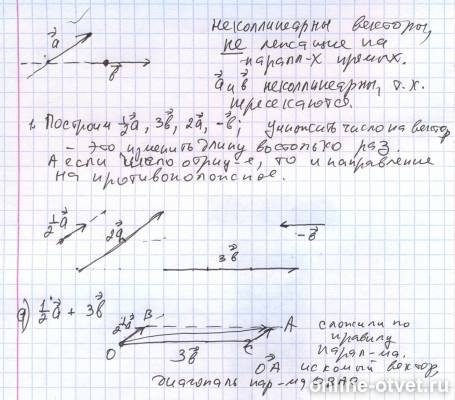 a⃗
b⃗
неколлинеарны векторы,
не лежащие на
паралл-х прямых.
a⃗ и b⃗ неколлинеарны, т.к.
пересекаются.
1. Построим ½a⃗, 3b⃗, 2a⃗, -b⃗; умножить число на вектор
- это изменить длину во столько раз.
А если число отриц-е, то и направление
на противоположное.
½a⃗
2a⃗
-b⃗
3b⃗
а) ½a⃗ + 3b⃗
½a⃗
B
A
O
3b⃗
C
сложили по
правилу
парал-ма.
O⃗A искомый вектор,
диагональ пар-ма OBAC
online-otvet.ru